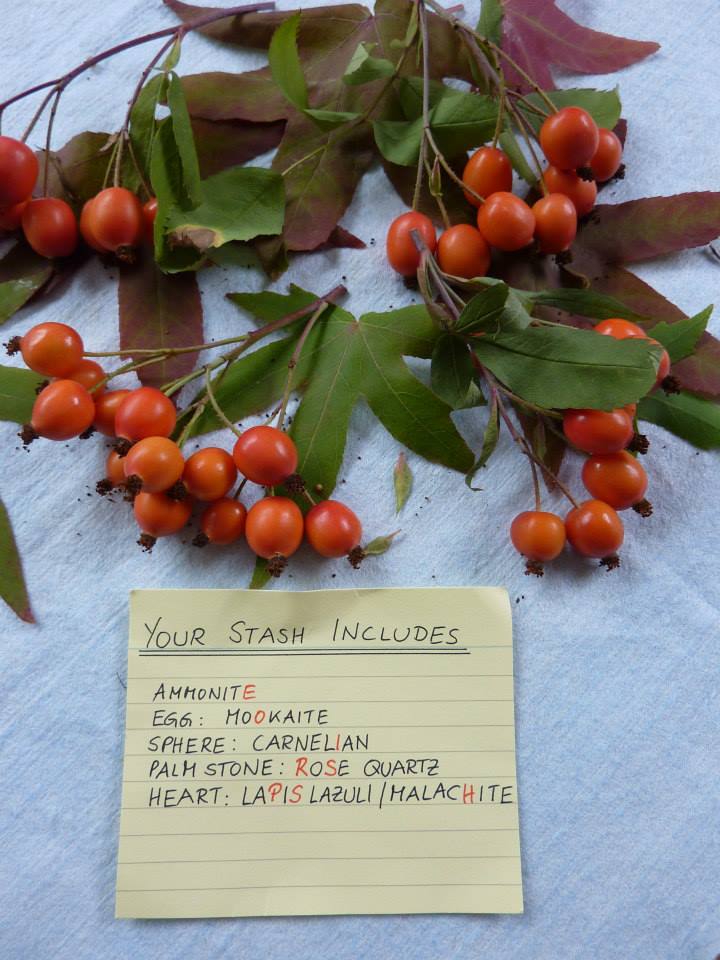 YOUR STASH INCLUDES
AMMONITE
EGG: MOOKAITE
SPHERE: CARNELIAN
PALM STONE: ROSE QUARTZ
HEART: LAPIS LAZULI/MALACHITE